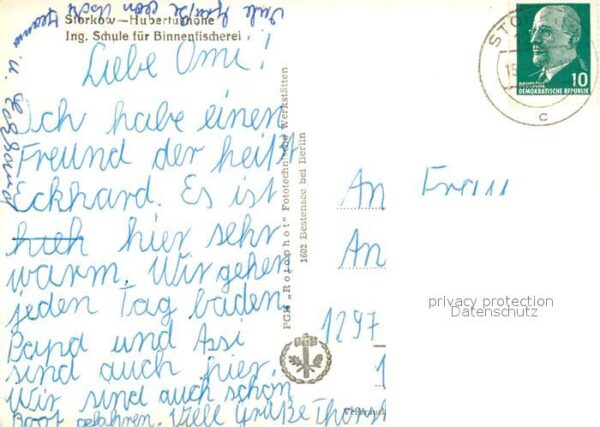 Storkow—Hubertushöhe
Ing. Schule für Binnenfischerei
Liebe Omi!
Ich habe einen
Freund der heißt
Eckhard. Es ist
hier sehr
warm. Wir gehen
jeden Tag baden.
Papa und Assi
sind auch hier.
Wir sind auch schon
Boot gefahren. Viele Grüße Thorst
Viele Grüße
u.
PGH „Rotophot“ Fototechnische Werkstätten
1602 Bestensee bei Berlin
STOR
15
c
10
DEUTSCHE
DEMOKRATISCHE REPUBLIK
An Frau
An
1297
1
privacy protection
Datenschutz